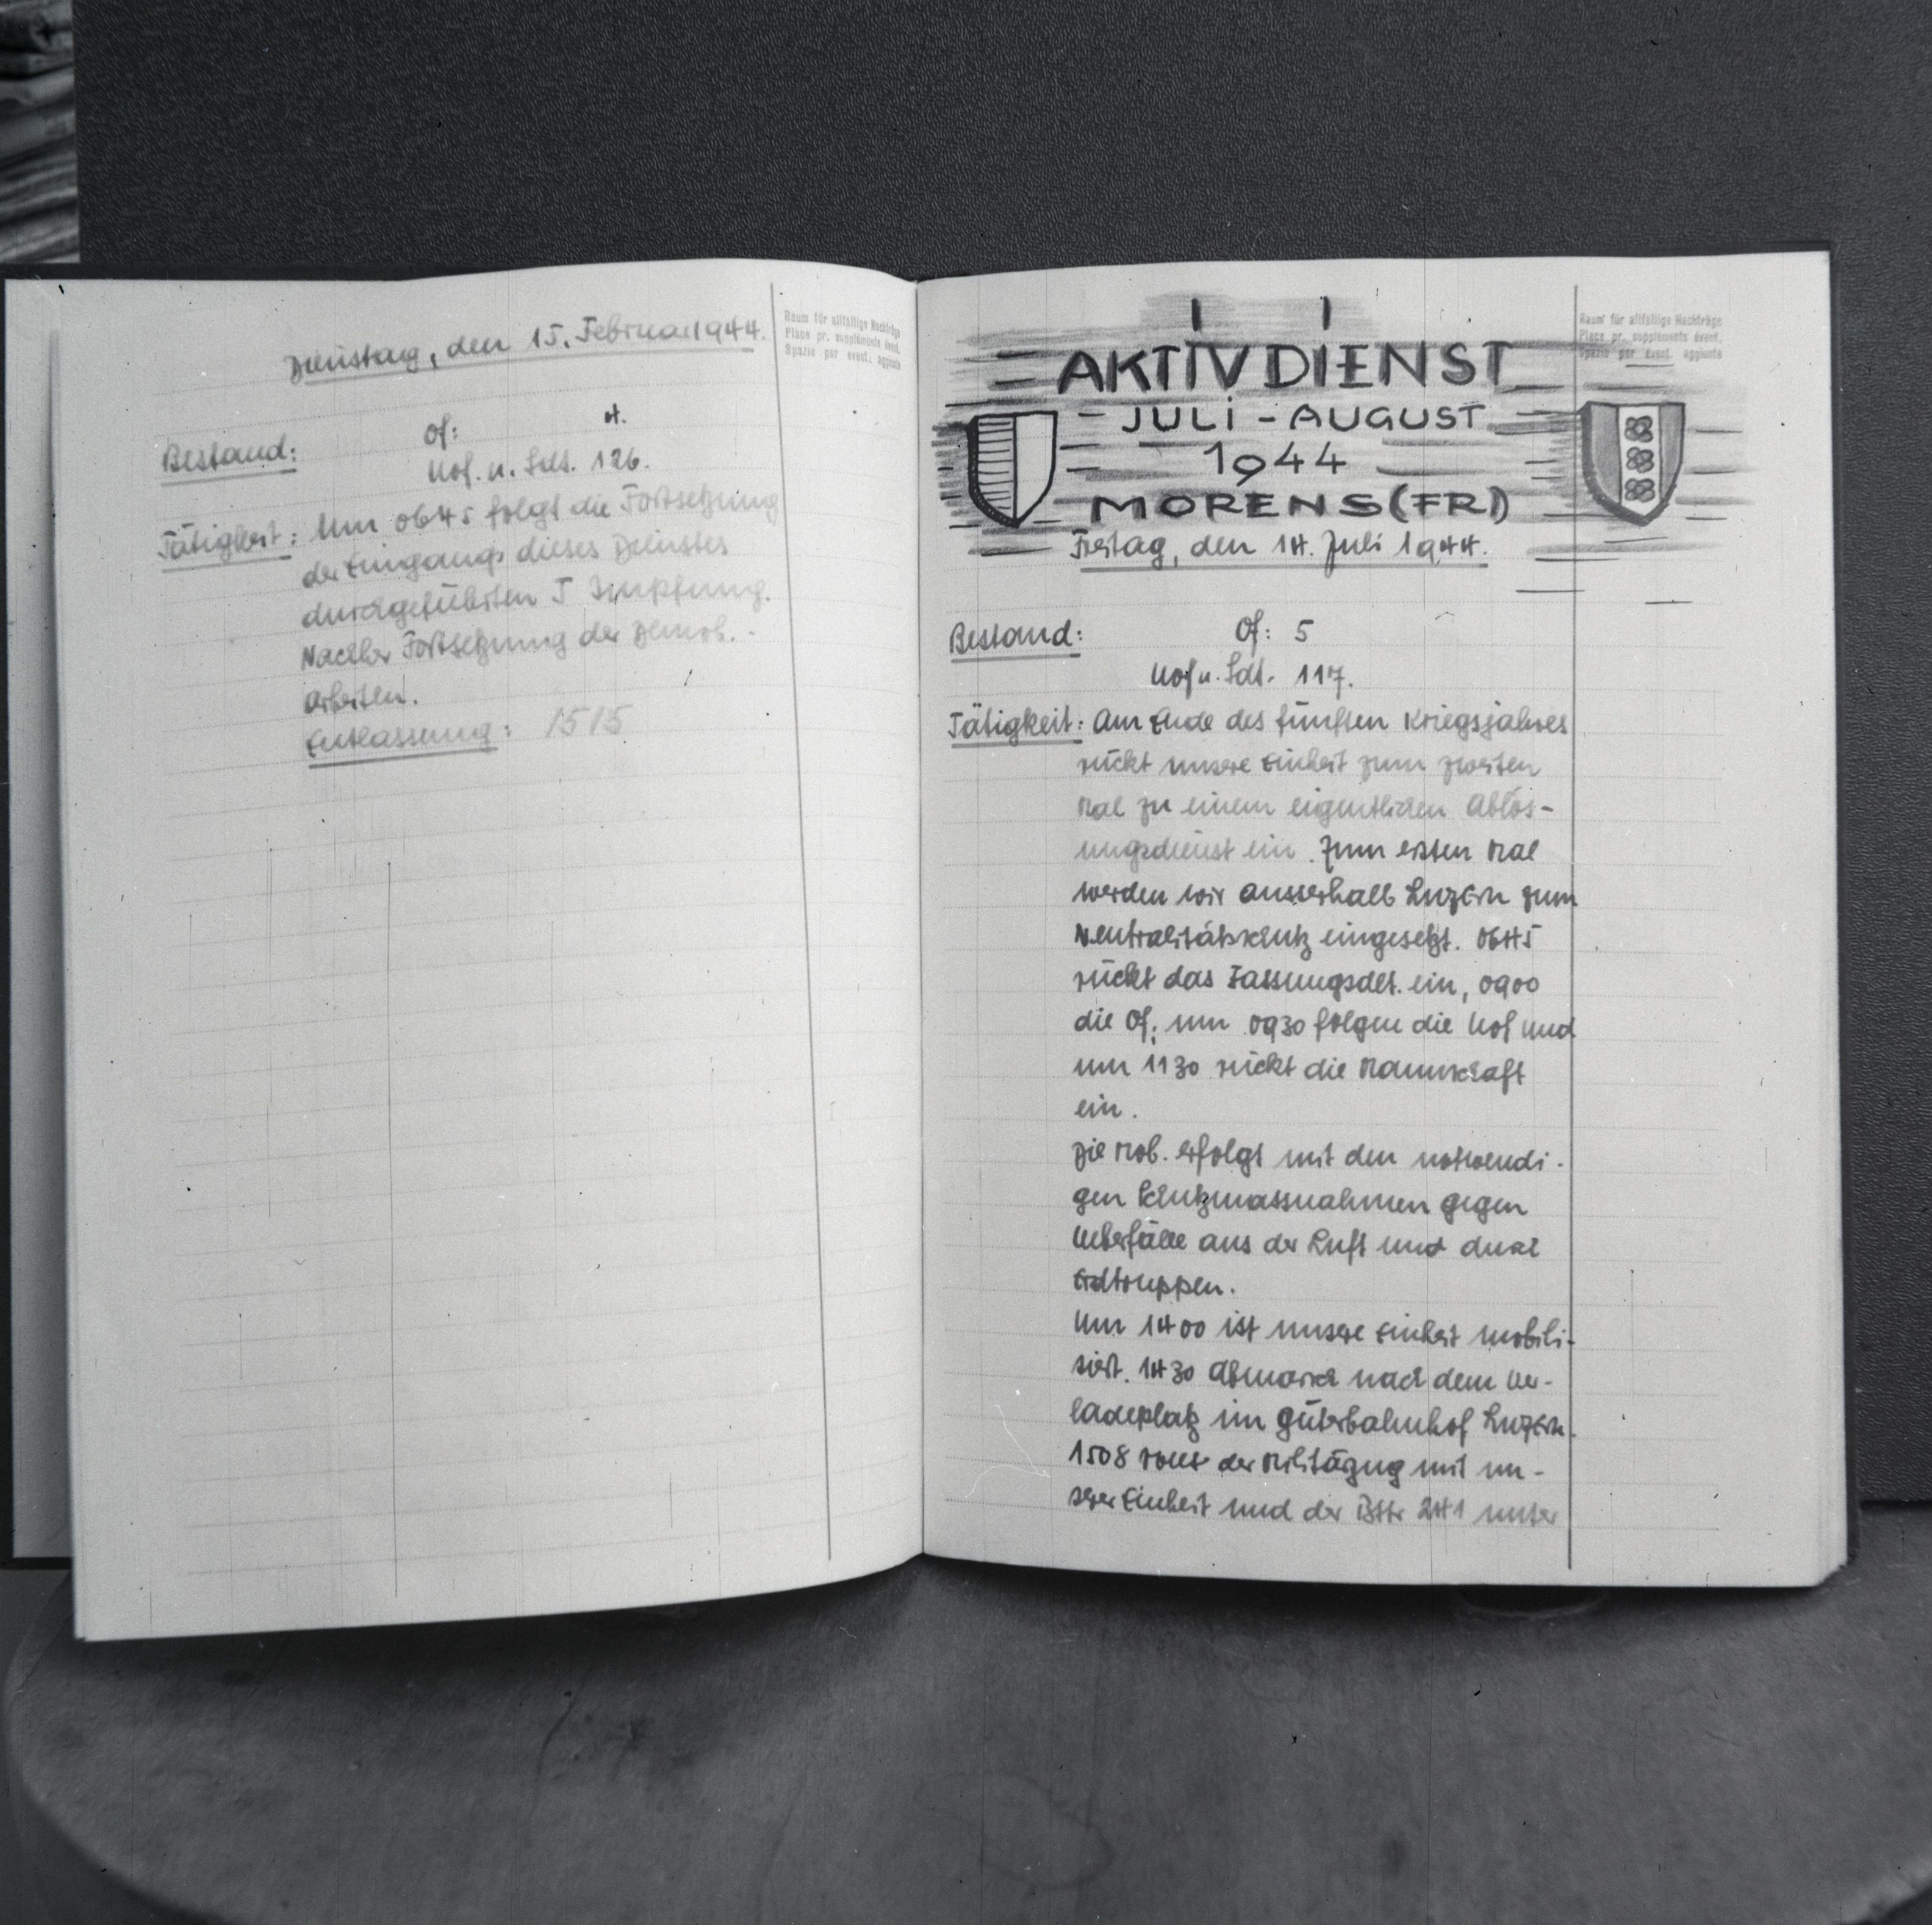 Dienstag, den 15. Februar 1944.
Raum für allfällige Nachträge
Place pr. suppléments évent.
Spazio per event. aggiunte
Bestand: Of: 4.
Uof. u. Sdt. 126.
Tätigkeit: Um 0645 folgt die Fortsetzung
der Eingangs dieses Dienstes
durchgeführten T Impfung.
Nachher Fortsetzung der Demob.-
arbeiten.
Entlassung: 1515
AKTIVDIENST
- JULI - AUGUST
1944
MORENS (FR)
Raum für allfällige Nachträge
Place pr. suppléments évent.
Spazio per event. aggiunte
Freitag, den 14. Juli 1944.
Bestand: Of: 5
Uof u. Sdt. 117.
Tätigkeit: Am Ende des fünften Kriegsjahres
rückt unsere Einheit zum zweiten
Mal zu einem eigentlichen Ablös-
ungsdienst ein. Zum ersten Mal
werden wir ausserhalb Luzern zum
Neutralitätsschutz eingesetzt. 0645
rückt das Fassungsdet. ein, 0900
die Of; um 0930 folgen die Uof und
um 1130 rückt die Mannschaft
ein.
Die Mob. erfolgt mit den notwendi-
gen Schutzmassnahmen gegen
Ueberfälle aus der Luft und durch
Erdtruppen.
Um 1400 ist unsere Einheit mobili-
siert. 1430 Abmarsch nach dem Ver-
ladeplatz im Güterbahnhof Luzern.
1508 rollt der Militärzug mit un-
serer Einheit und der Bttr 241 unter